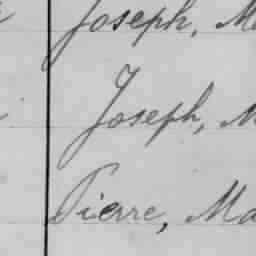 Joseph, Ma
Joseph, M
Pierre, Ma